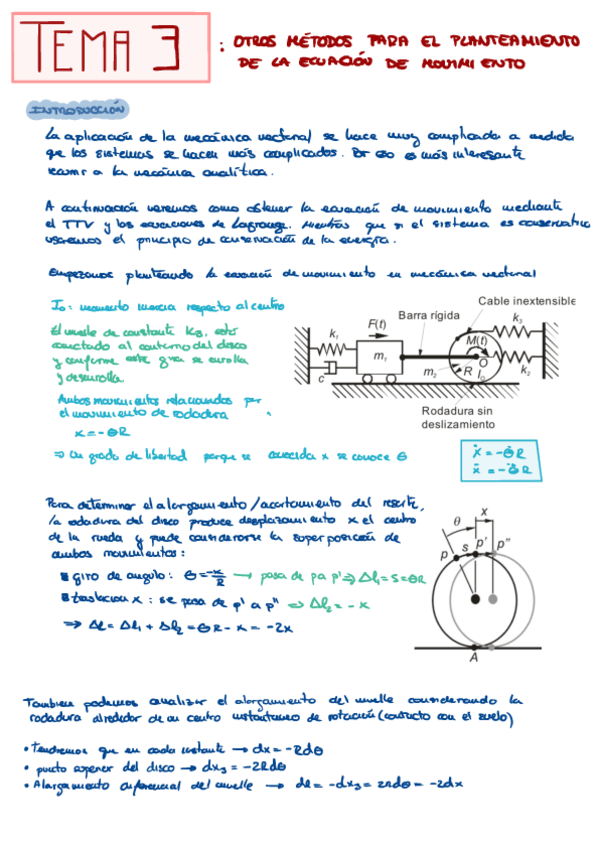 TEMA 3 : OTROS MÉTODOS PARA EL PLANTEAMIENTO
DE LA ECUACIÓN DE MOVIMIENTO
INTRODUCCIÓN
La aplicación de la mecánica vectorial se hace muy complicada a medida
que los sistemas se hacen más complicados. Por eso es más interesante
recurrir a la mecánica analítica.
A continuación veremos como obtener la ecuación de movimiento mediante
el TTV y las ecuaciones de Lagrange. Mientras que si el sistema es conservativo
usaremos el principio de conservación de la energía.
Empezamos planteando la ecuación de movimiento en mecánica vectorial
I₀: momento inercia respecto al centro
El muelle de constante K₃, está
conectado al contorno del disco
y conforme este gira se enrolla
y desenrolla
Ambos movimientos relacionados por
el movimiento de rodadura
x = -θR
⇒ Un grado de libertad porque si conocida x se conoce θ
Cable inextensible
Barra rígida
k₃
F(t)
k₁
M(t)
m₁
O
c
m₂
R
I₀
k₂
Rodadura sin
deslizamiento
ẋ = -θ̇R
ẍ = -θ̈R
Para determinar el alargamiento/acortamiento del resorte,
la rodadura del disco produce desplazamiento x el centro
de la rueda y puede considerarse la superposición de
ambos movimientos:
giro de angulo: θ = -x/R → pasa de p a p' ⇒ Δl₁ = S = θR
traslacion x: se pasa de p' a p'' ⇒ Δl₂ = -x
⇒ Δl = Δl₁ + Δl₂ = θR - x = -2x
x
θ
p
s
p'
p''
A
Tambien podemos analizar el alargamiento del muelle considerando la
rodadura alrededor de un centro instantaneo de rotación (contacto con el suelo)
• Tendremos que en cada instante → dx = -Rdθ
• punto superior del disco → dx₃ = -2Rdθ
• Alargamiento diferencial del muelle → dl = -dx₃ = 2Rdθ = -2dx